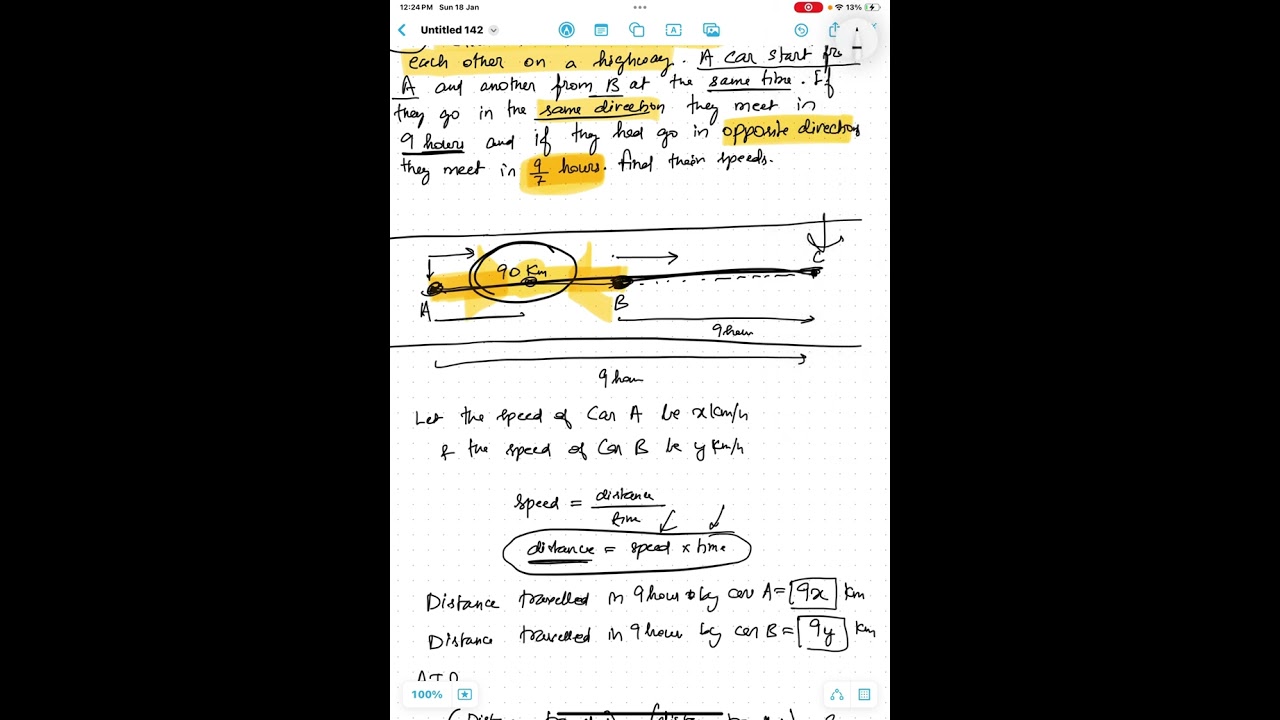 12:24 PM Sun 18 Jan
13%
Untitled 142
each other on a highway. A car start fro
A and another from B at the same time. If
they go in the same direction they meet in
9 hours and if they had go in opposite direction
they meet in 9/7 hours. find their speeds.
90 Km
A
B
C
9 hour
9 hour
Let the speed of Car A be x km/h
& the speed of Car B be y Km/h
speed = distance / time
distance = speed × time
Distance travelled in 9 hour by car A = 9x km
Distance travelled in 9 hour by car B = 9y km
100%